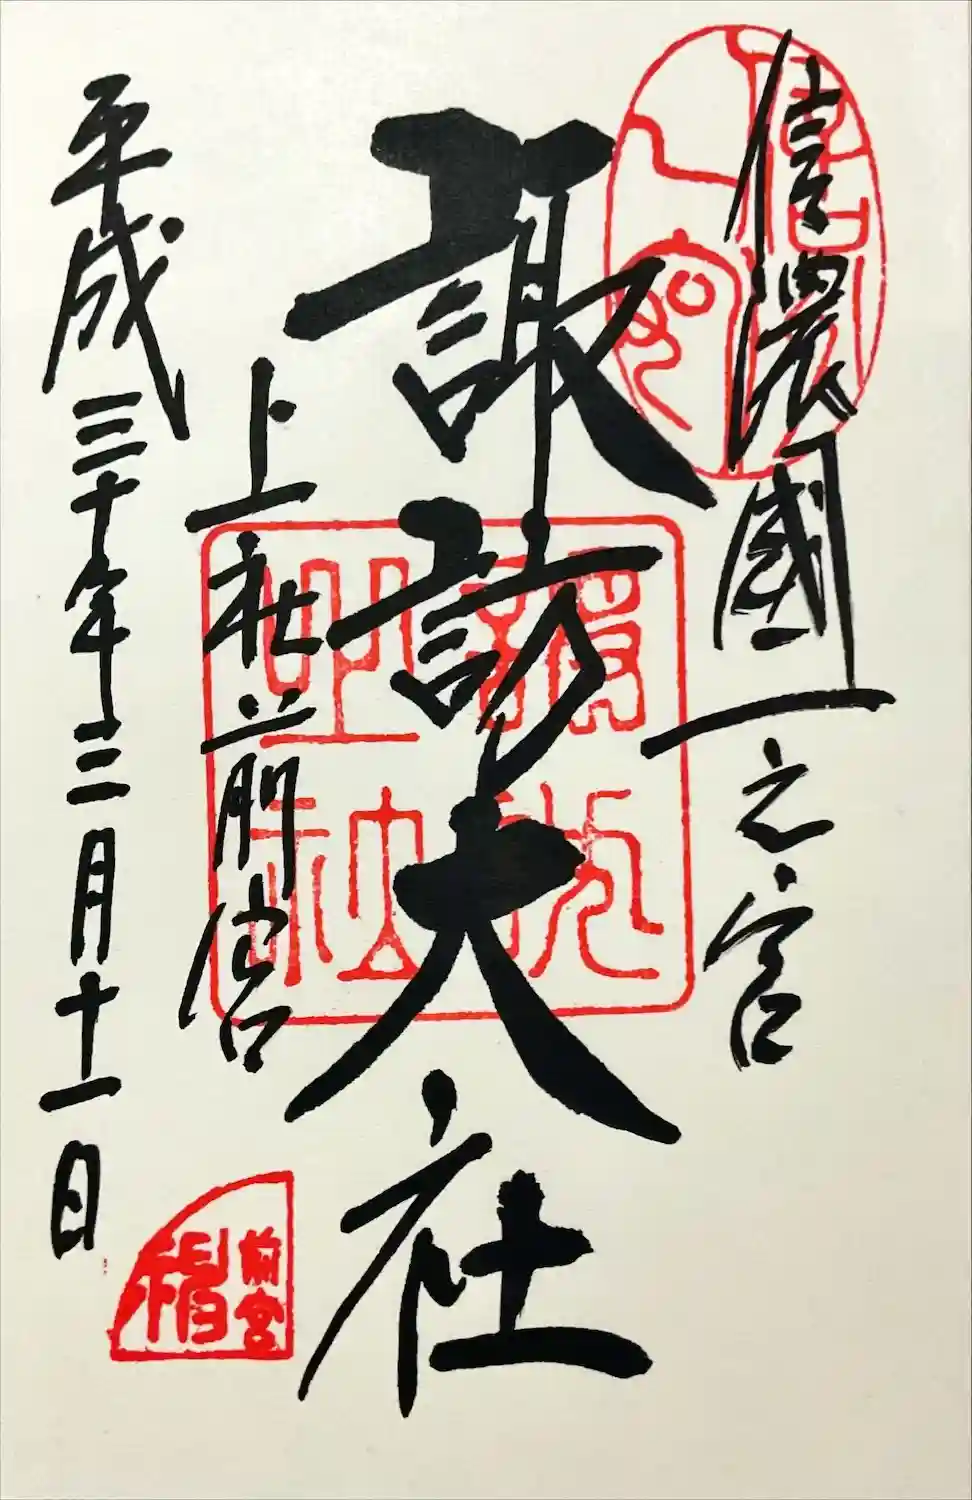 信濃國一之宮
諏訪大社
上社前宮
平成三十年三月十一日
諏方
大社
之印
前宮